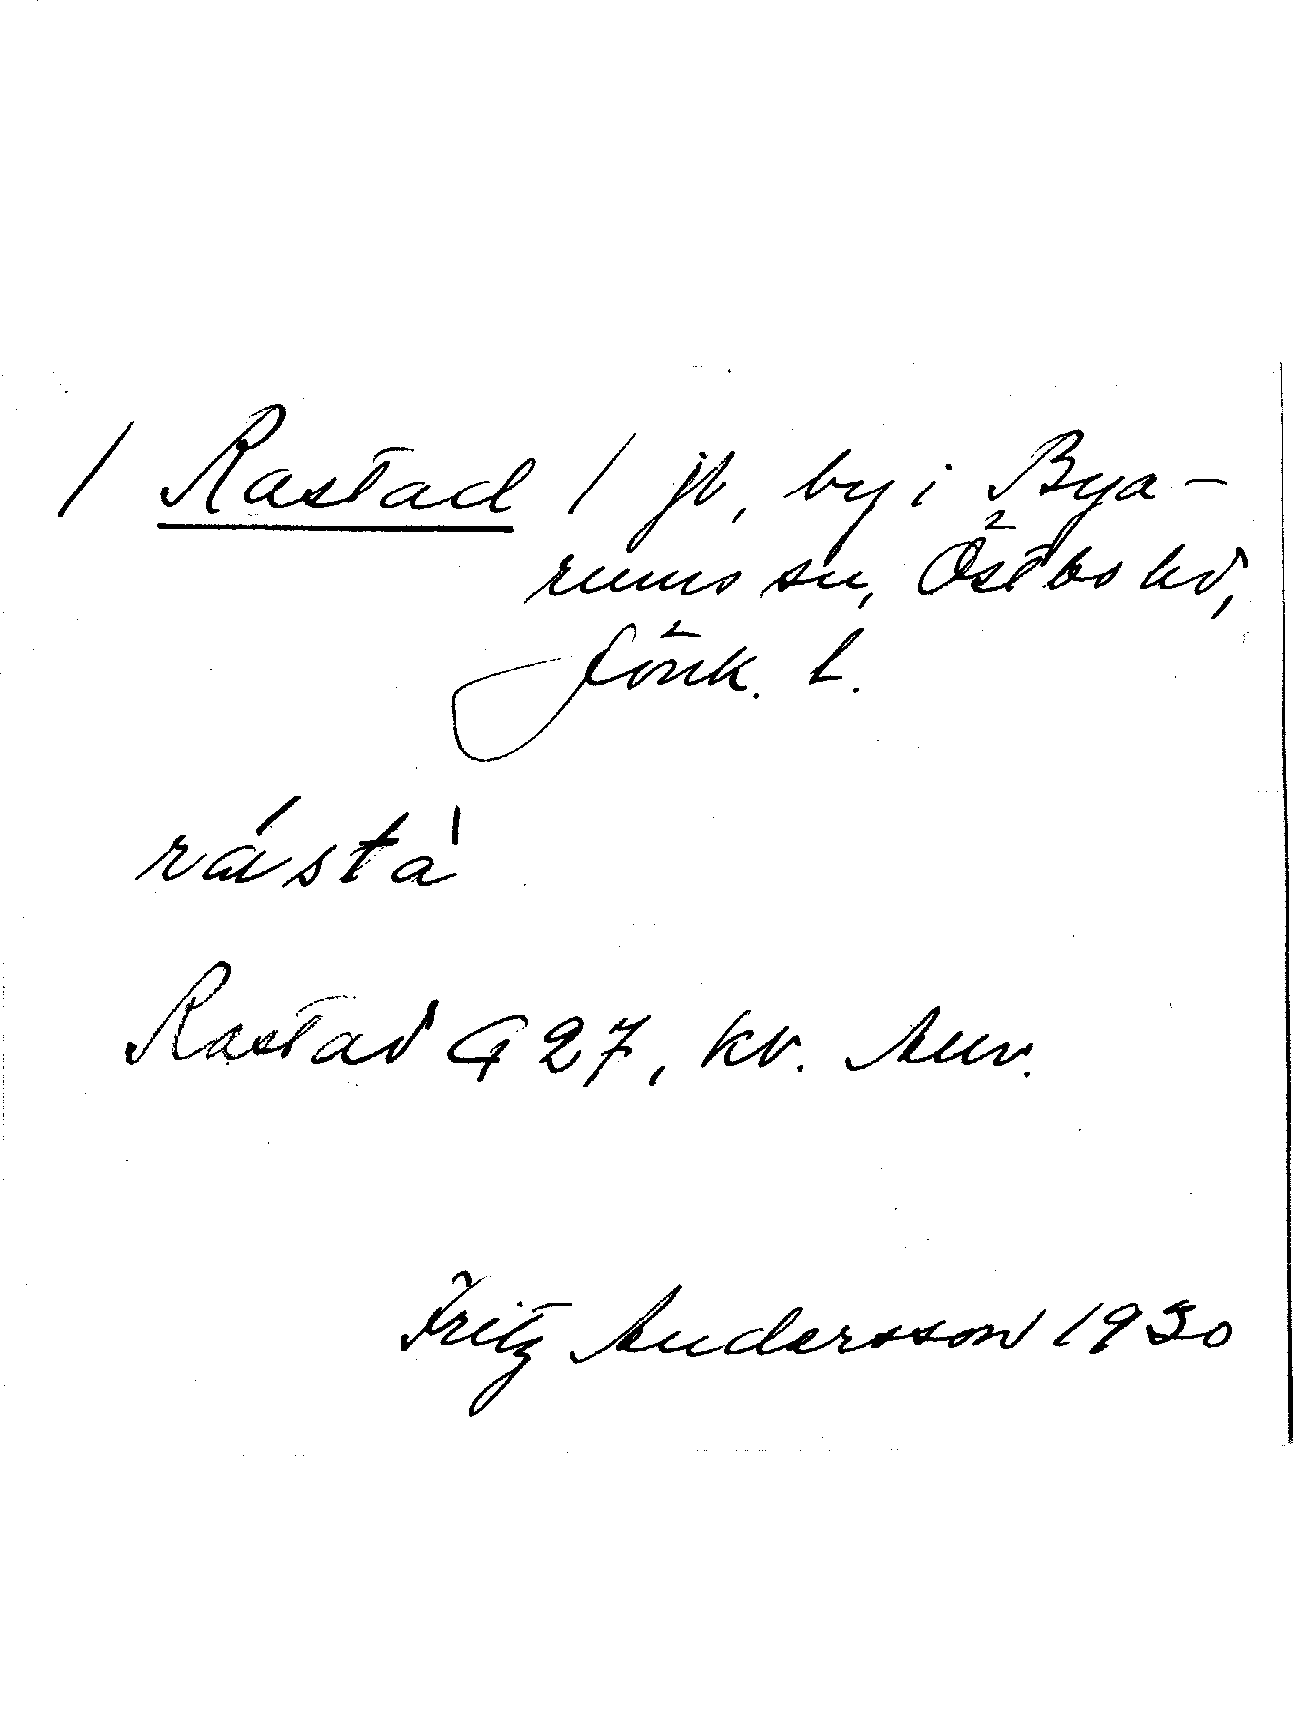 / Rastad / jb, by i Bya-
rums sn, Östbo hd,
Jönk. l.
rástà
Rastad G 27, kv. Anv.
Fritz Andersson 1930